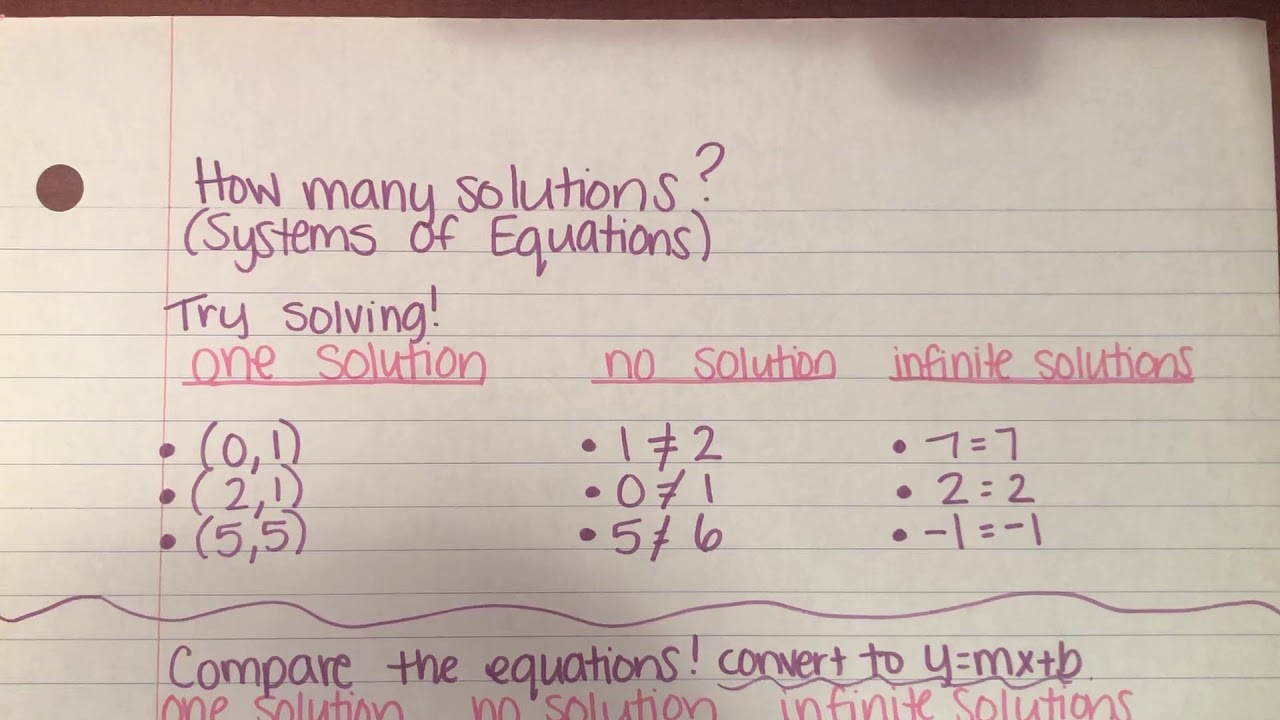 How many solutions?
(Systems of Equations)
Try solving!
one solution no solution infinite solutions
• (0,1) • 1 ≠ 2 • 7=7
• (2,1) • 0 ≠ 1 • 2=2
• (5,5) • 5 ≠ 6 • -1=-1
Compare the equations! convert to y=mx+b
one solution no solution infinite solutions